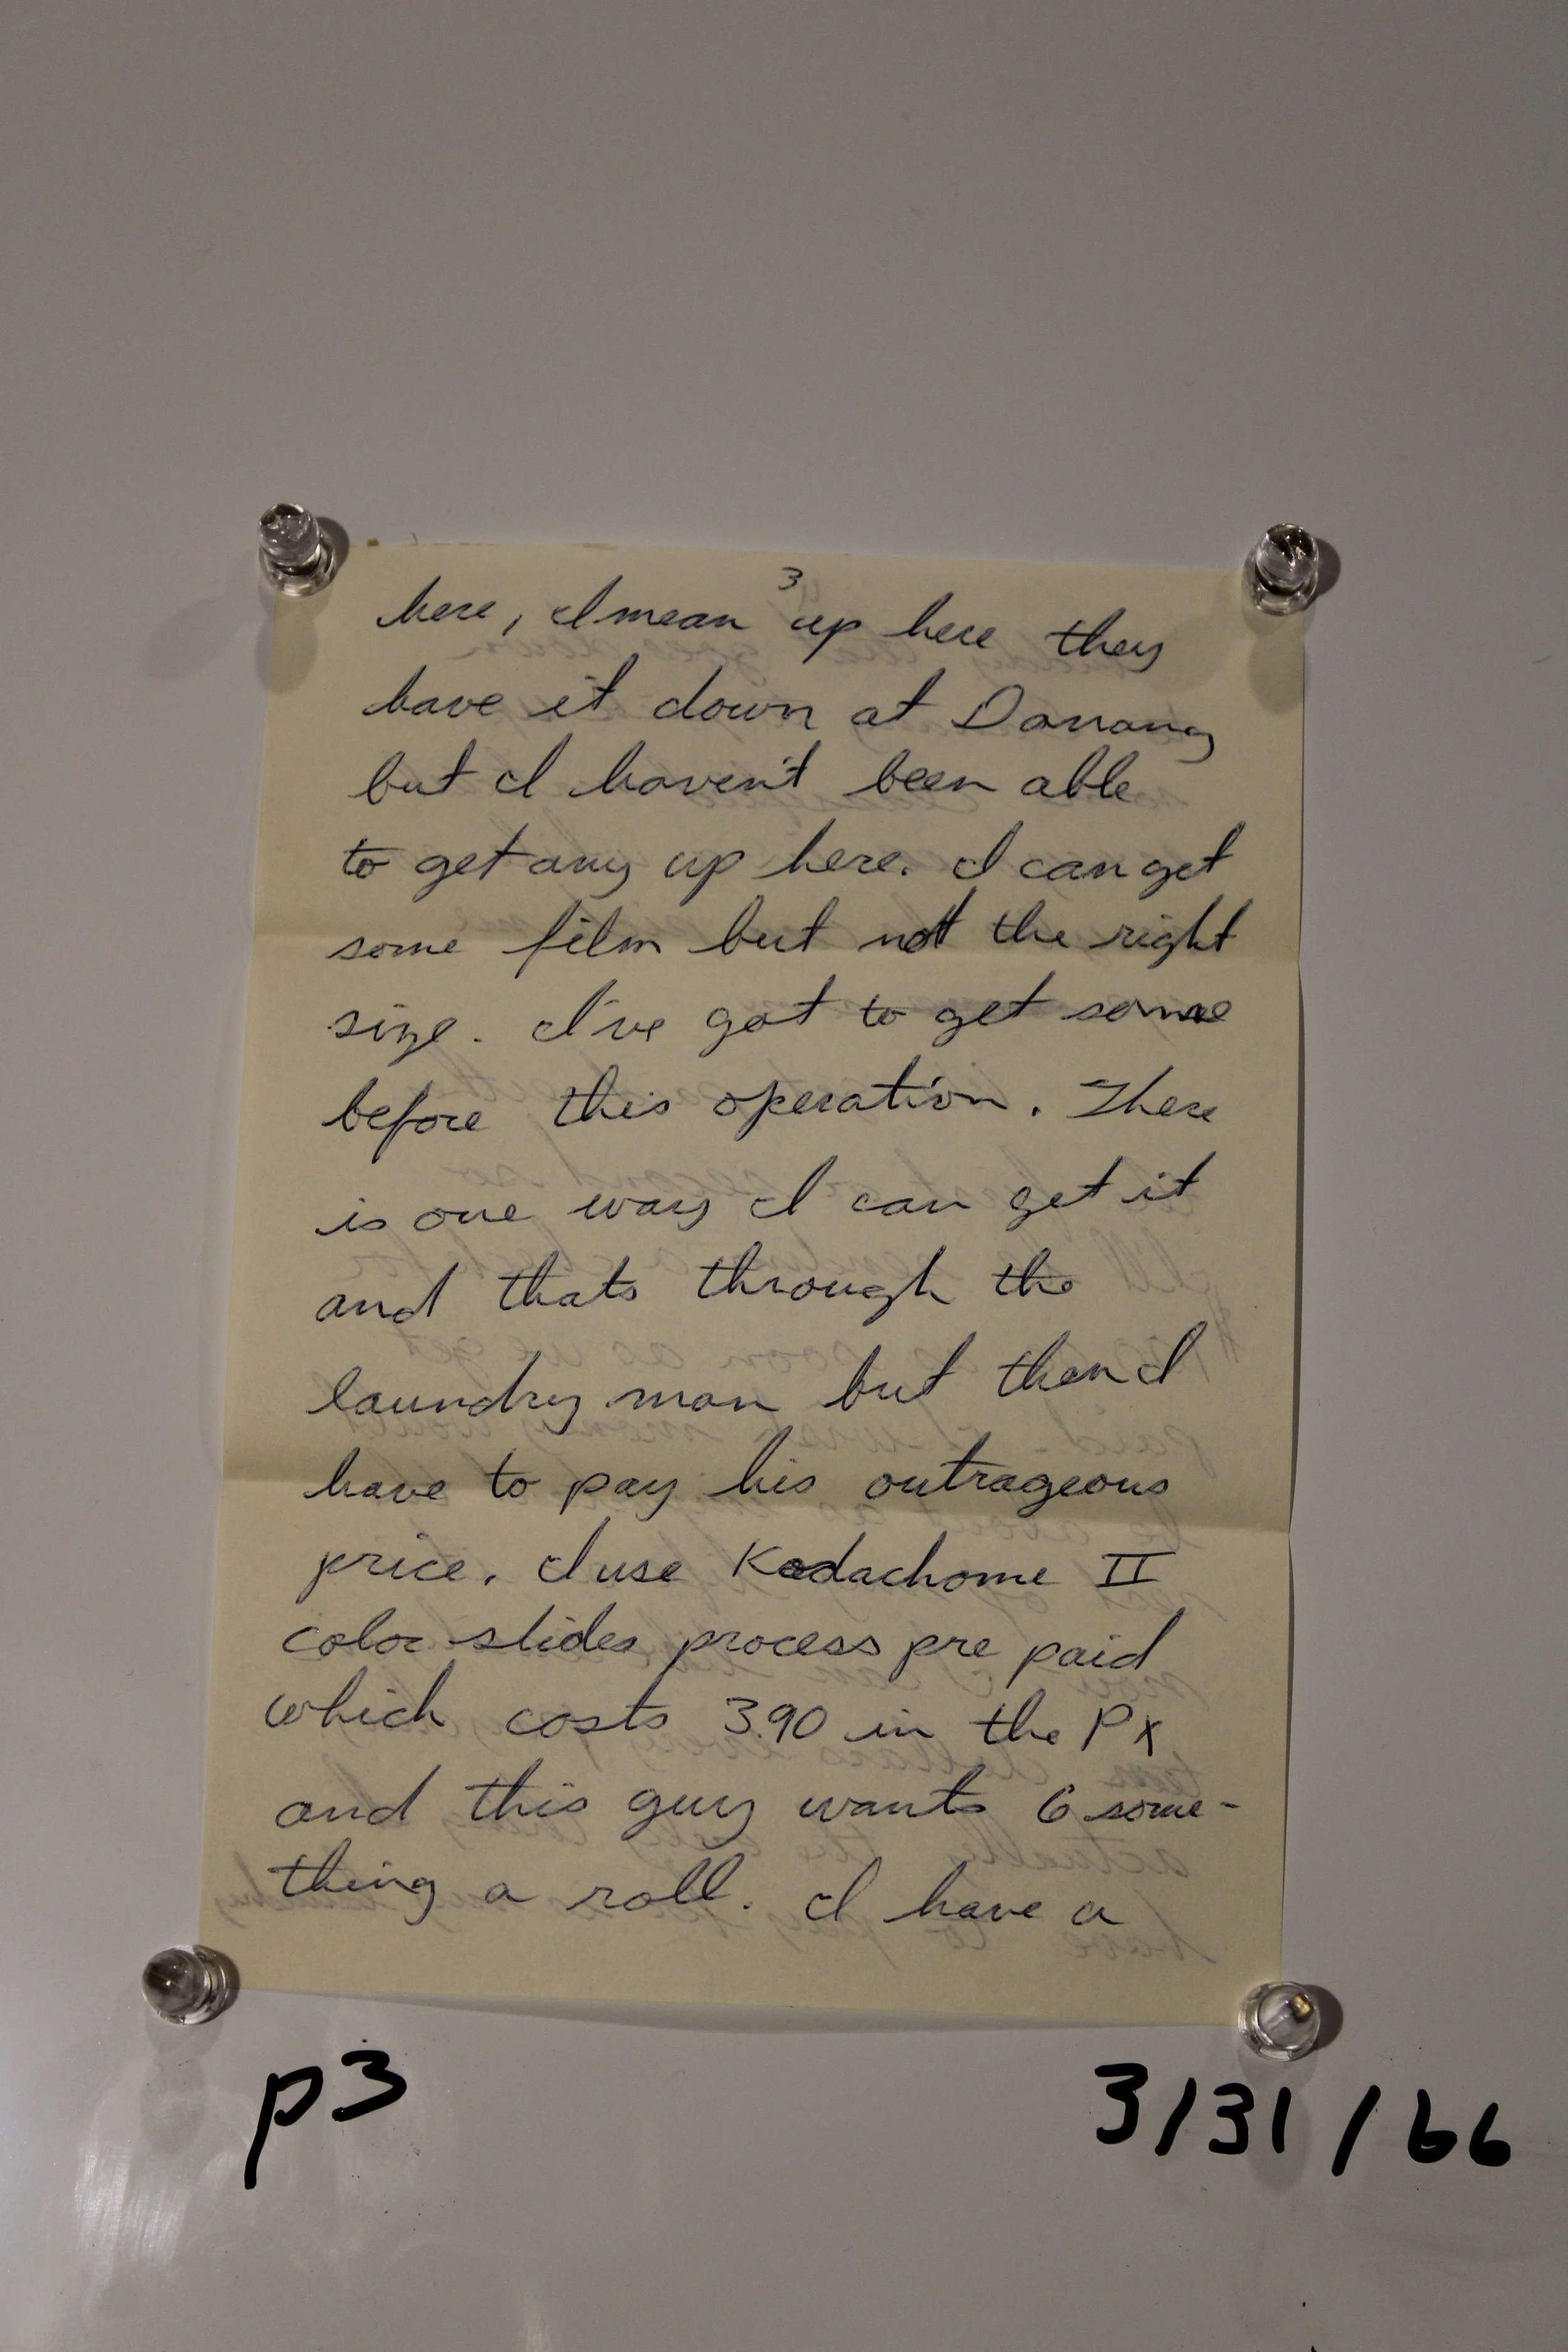 3
here, I mean up here they
have it down at Danang
but I haven't been able
to get any up here. I can get
some film but not the right
size. I've got to get some
before this operation. There
is one way I can get it
and thats through the
laundry man but then I
have to pay his outrageous
price. I use Kodachome II
color slides process pre paid
which costs 3.90 in the PX
and this guy wants 6 some-
thing a roll. I have a
p3
3/31/66